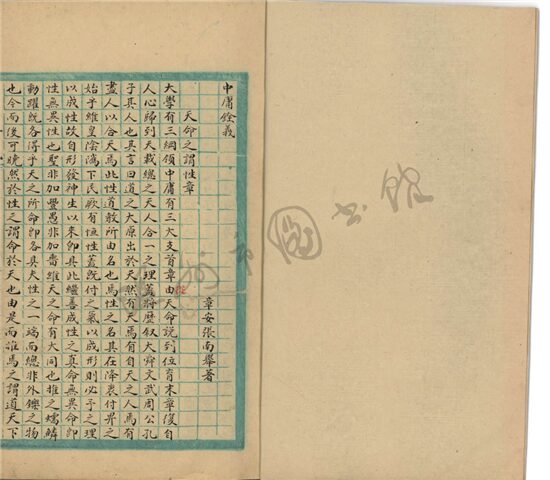 中庸餘義
章安張南舉著
天命之謂性章
大學有三綱領中庸有三大支首章由天命說到位育末章復自
人心歸到天載總之天人合一之理蓋將歷叙大舜文武周公孔
子其人也其言曰道之大原出於天然有天焉有自天之人焉有
盡人以合天焉此性道教所由名也焉性之名其在降衷付畀之
始乎維皇陰隲下民厥有恒性蓋既付之氣以成形則必予之理
以成性故自形發神生以來即具此繼善成性之真命無異命即
性無異性也聖非加豐愚非加嗇維天之命有大同也推之蠕鱗
動躍既各得乎天之所命即各具夫性之一端而總非外鑠之物
也今而後可曉然於性之謂命於天也由是而誰焉之謂道天下
州市圖書館